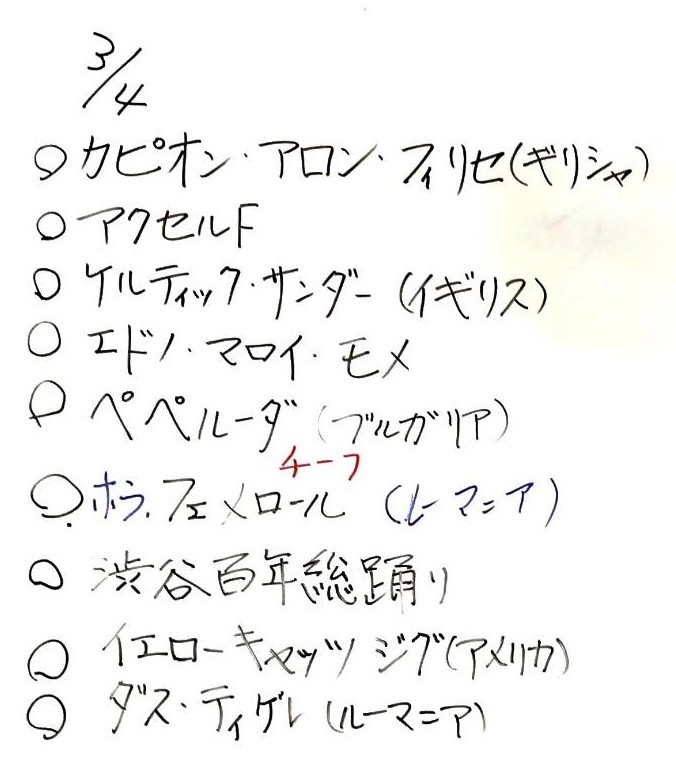 3/4
○カピオン・アロン・フィリセ(ギリシャ)
○アクセルF
○ケルティック・サンダー(イギリス)
○エドノ・マロイ・モメ
○ペペルーダ(ブルガリア)
チーフ
○ホラ.フェメロール(ルーマニア)
○渋谷百年総踊り
○イエローキャッツ ジグ(アメリカ)
○ダス・ティゲレ(ルーマニア)